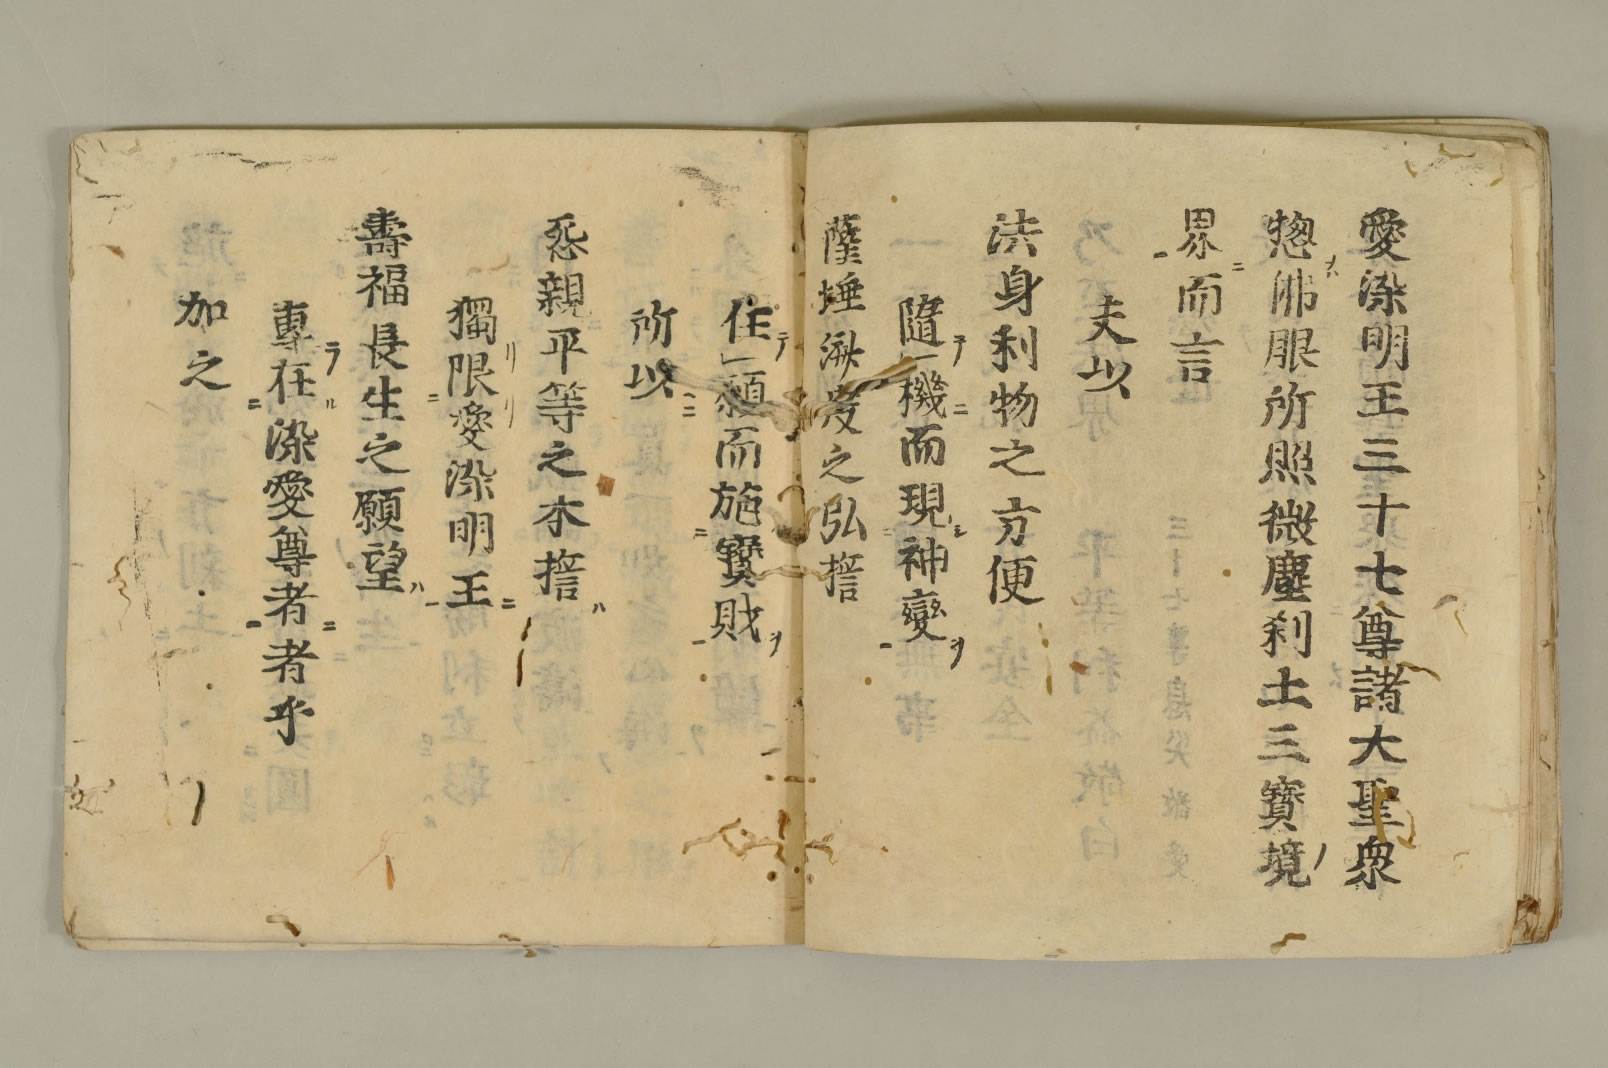 愛染明王三十七尊諸大聖衆
惣佛眼所照微塵刹土三寳境
界而言
夫以
法身利物之方便
隨機而現神變
薩埵濟度之弘誓
任願而施寳財
所以
怨親平等之本誓
獨限愛染明王
壽福長生之願望
專在染愛尊者者乎
加之